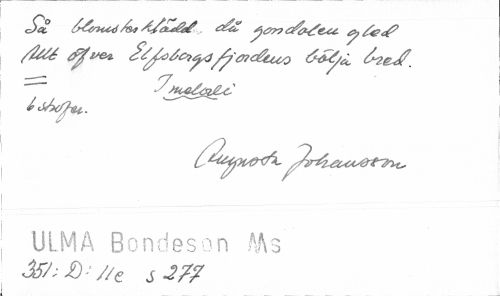 Så blomsterklädd då gondolen gled
Allt öfver Elfsborgsfjordens bölja bred.
I melodi
6 strofer.
Augusta Johansson
ULMA Bondeson Ms
351: D: 11e s 277